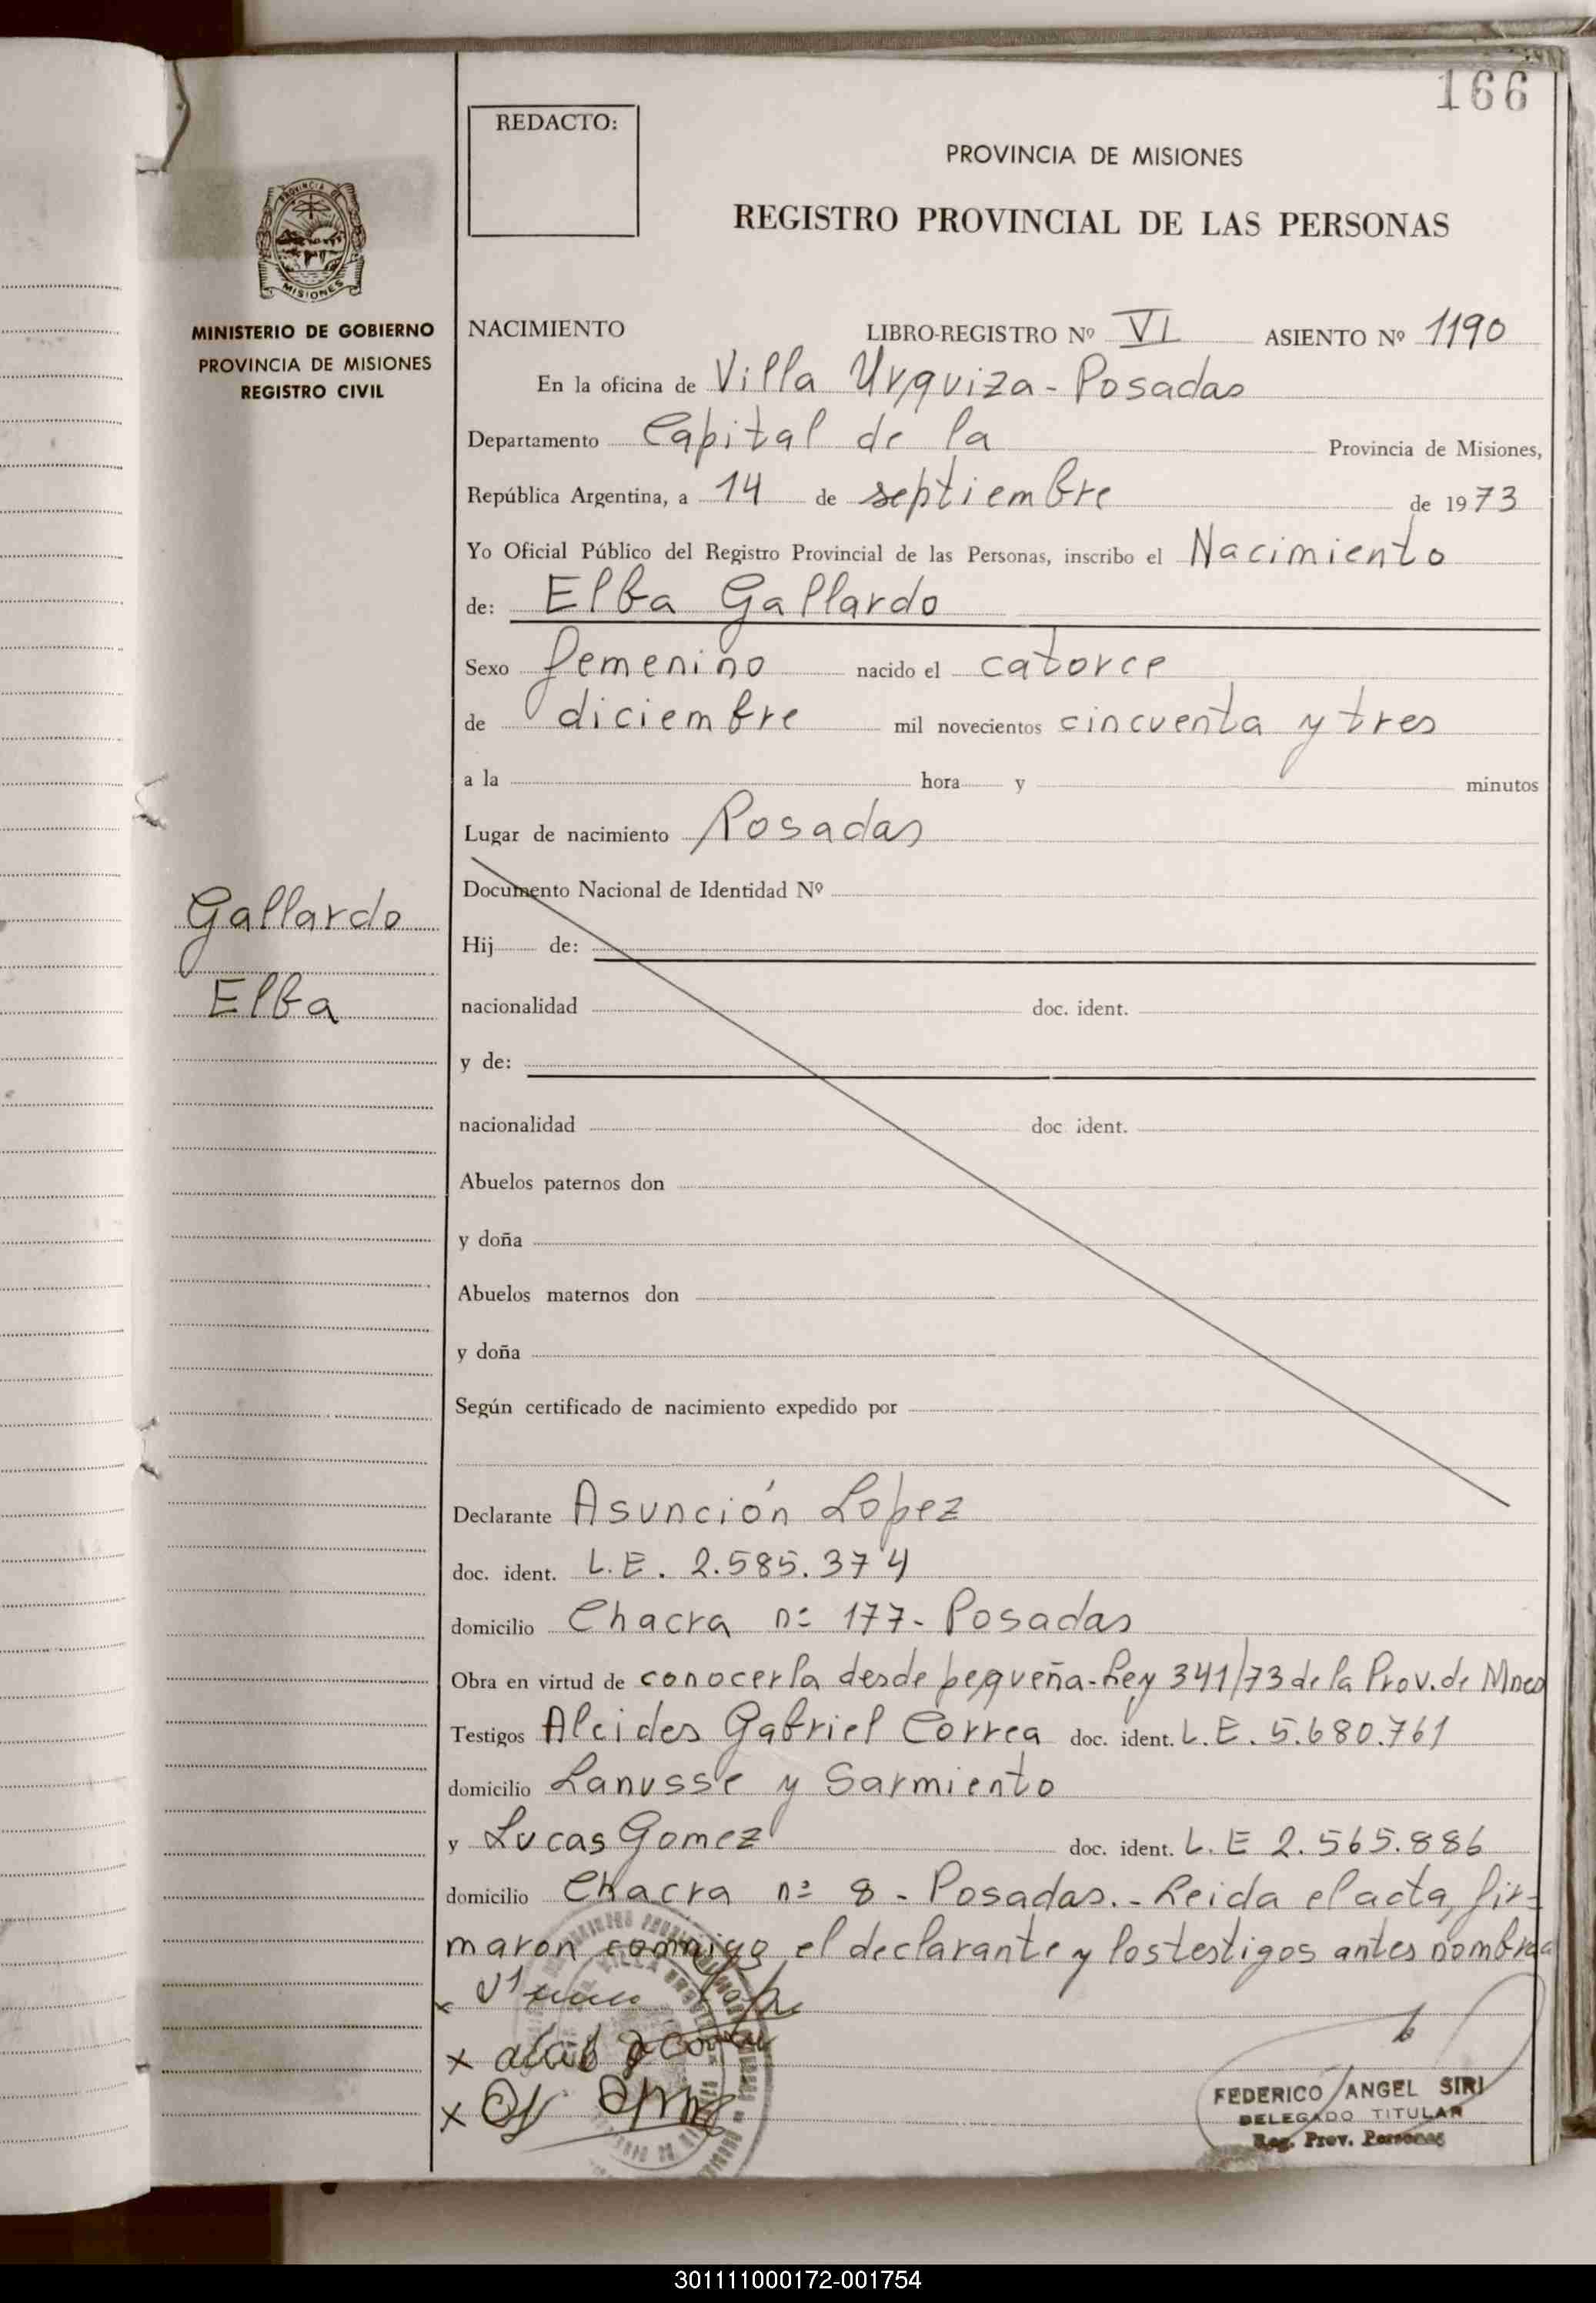 166
REDACTO:
PROVINCIA DE MISIONES
REGISTRO PROVINCIAL DE LAS PERSONAS
PROVINCIA DE
MISIONES
MINISTERIO DE GOBIERNO
PROVINCIA DE MISIONES
REGISTRO CIVIL
NACIMIENTO LIBRO-REGISTRO Nº VI ASIENTO Nº 1190
En la oficina de Villa Urquiza - Posadas
Departamento Capital de la Provincia de Misiones,
República Argentina, a 14 de septiembre de 1973
Yo Oficial Público del Registro Provincial de las Personas, inscribo el Nacimiento
de: Elba Gallardo
Sexo femenino nacido el catorce
de diciembre mil novecientos cincuenta y tres
a la hora y minutos
Lugar de nacimiento Posadas
Documento Nacional de Identidad Nº
Gallardo
Elba
Hij de:
nacionalidad doc. ident.
y de:
nacionalidad doc ident.
Abuelos paternos don
y doña
Abuelos maternos don
y doña
Según certificado de nacimiento expedido por
Declarante Asunción Lopez
doc. ident. L.E. 2.585.374
domicilio Chacra nº 177 - Posadas
Obra en virtud de conocerla desde pequeña - Ley 341/73 de la Prov. de Mnes
Testigos Alcides Gabriel Correa doc. ident. L.E. 5.680.761
domicilio Lanusse y Sarmiento
y Lucas Gomez doc. ident. L.E 2.565.886
domicilio Chacra nº 8 - Posadas. - Leida el acta, fir-
maron conmigo el declarante y los testigos antes nombra
FEDERICO ANGEL SIRI
DELEGADO TITULAR
Reg. Prov. Personas
301111000172-001754